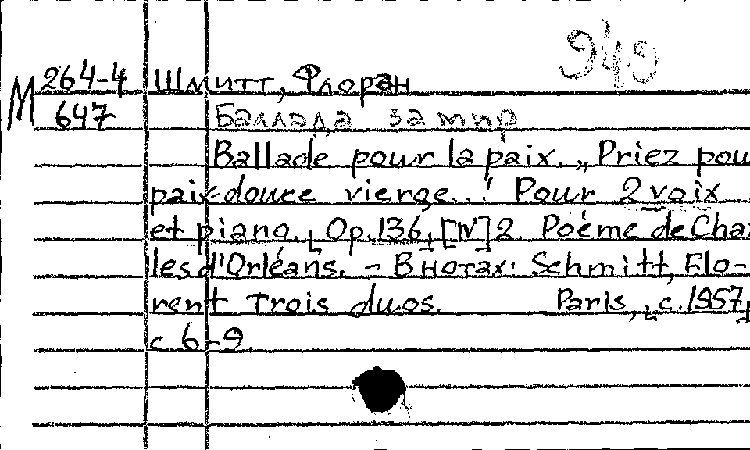 949
М 264-4 Шмитт, Флоран
647 Баллада за мир
Ballade pour la paix. „Priez pou
paix douce vierge..! Pour 2 voix
et piano. [Op. 136, [N] 2. Poème de Cha
les d'Orléans. – В нотах: Schmitt, Flo-
rent Trois duos. Paris, [c. 1957,
с 6-9